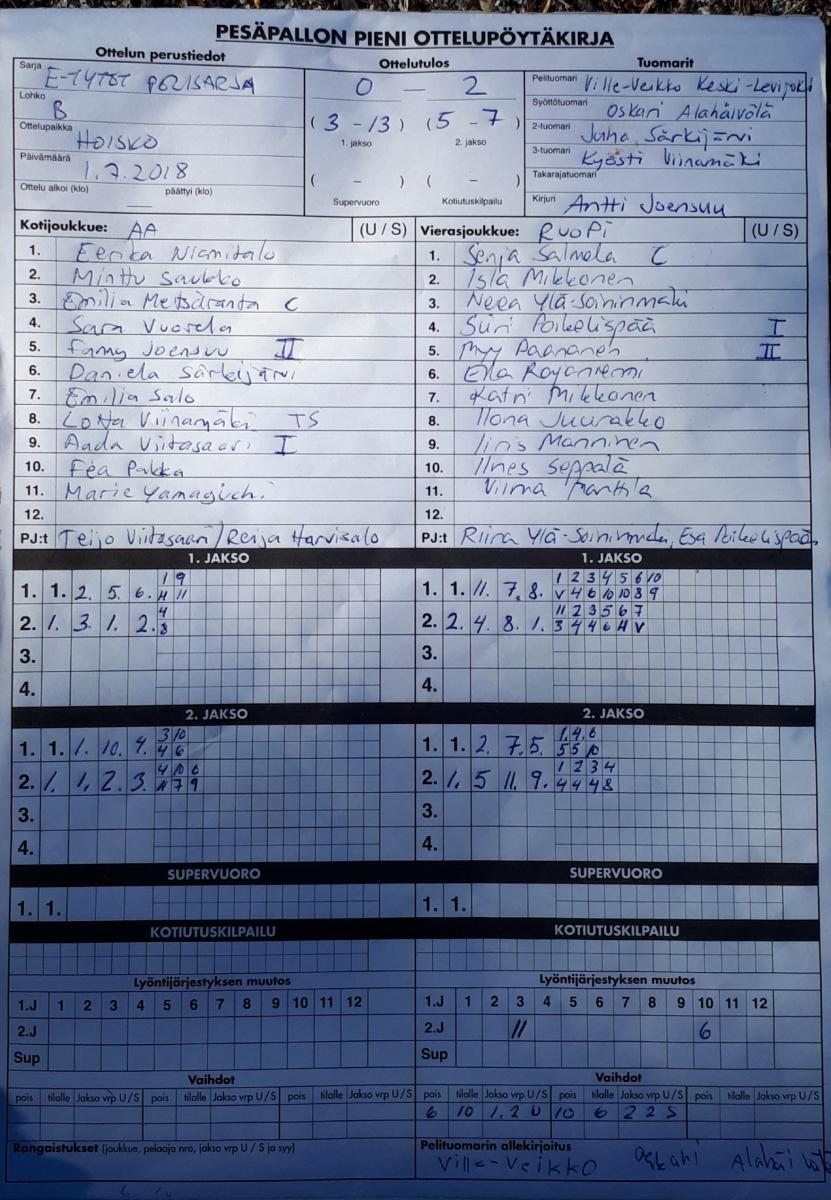 PESÄPALLON PIENI OTTELUPÖYTÄKIRJA
Ottelun perustiedot
Sarja E-TYTÖT PERUSSARJA
Lohko B
Ottelupaikka HOISKO
Päivämäärä 1.7.2018
Ottelu alkoi (klo) päättyi (klo)
Ottelutulos
0 — 2
( 3 - 13 ) ( 5 - 7 )
1. jakso 2. jakso
( - ) ( - )
Supervuoro Kotiutuskilpailu
Tuomarit
Pelituomari Ville-Veikko Keski-Levijoki
Syöttötuomari Oskari Alahäivälä
2-tuomari Juha Särkijärvi
3-tuomari Kyösti Viinamäki
Takarajatuomari
Kirjuri Antti Joensuu
Kotijoukkue: AA (U / S)
1. Eerika Niemitalo
2. Minttu Saukko
3. Emilia Metsäranta C
4. Sara Vuorela
5. Fanny Joensuu II
6. Daniela Särkijärvi
7. Emilia Salo
8. Lotta Viinamäki TS
9. Aada Viitasaari I
10. Fea Pakka
11. Marie Yamaguchi
12.
PJ:t Teijo Viitasaari / Reija Harvisalo
Vierasjoukkue: RuoPi (U / S)
1. Senja Salmela C
2. Isla Mikkonen
3. Neea Ylä-Soininmäki
4. Siiri Poikelispää I
5. Myy Paananen II
6. Ella Royaniemi
7. Katri Mikkonen
8. Ilona Juurakko
9. Iiris Manninen
10. Ilnes Seppälä
11. Vilma Manttila
12.
PJ:t Riina Ylä-Soininmäki, Esa Poikelispää
1. JAKSO
1 9
1. 1. 2. 5. 6. H 11
4
2. 1. 3. 1. 2. 8
3.
4.
1. JAKSO
1 2 3 4 5 6 10
1. 1. 11. 7. 8. V 4 6 10 10 8 9
11 2 3 5 6 7
2. 2. 4. 8. 1. 3 4 4 6 H V
3.
4.
2. JAKSO
3 10
1. 1. 1. 10. 4. 4 6
4 10 6
2. 1. 1. 2. 3. H 7 9
3.
4.
2. JAKSO
1. 4. 6
1. 1. 2. 7. 5. 5 5 10
1 2 3 4
2. 1. 5 11. 9. 4 4 4 8
3.
4.
SUPERVUORO
1. 1.
SUPERVUORO
1. 1.
KOTIUTUSKILPAILU
KOTIUTUSKILPAILU
Lyöntijärjestyksen muutos
1.J 1 2 3 4 5 6 7 8 9 10 11 12
2.J
Sup
Lyöntijärjestyksen muutos
1.J 1 2 3 4 5 6 7 8 9 10 11 12
2.J 11 6
Sup
Vaihdot
pois tilalle Jakso vrp U / S pois tilalle Jakso vrp U / S pois tilalle Jakso vrp U / S
Vaihdot
pois tilalle Jakso vrp U / S pois tilalle Jakso vrp U / S pois tilalle Jakso vrp U / S
6 10 1. 2 U 10 6 2 2 S
Rangaistukset (joukkue, pelaaja nro, jakso vrp U / S ja syy)
Pelituomarin allekirjoitus
Ville-Veikko Oskari Alahäivälä